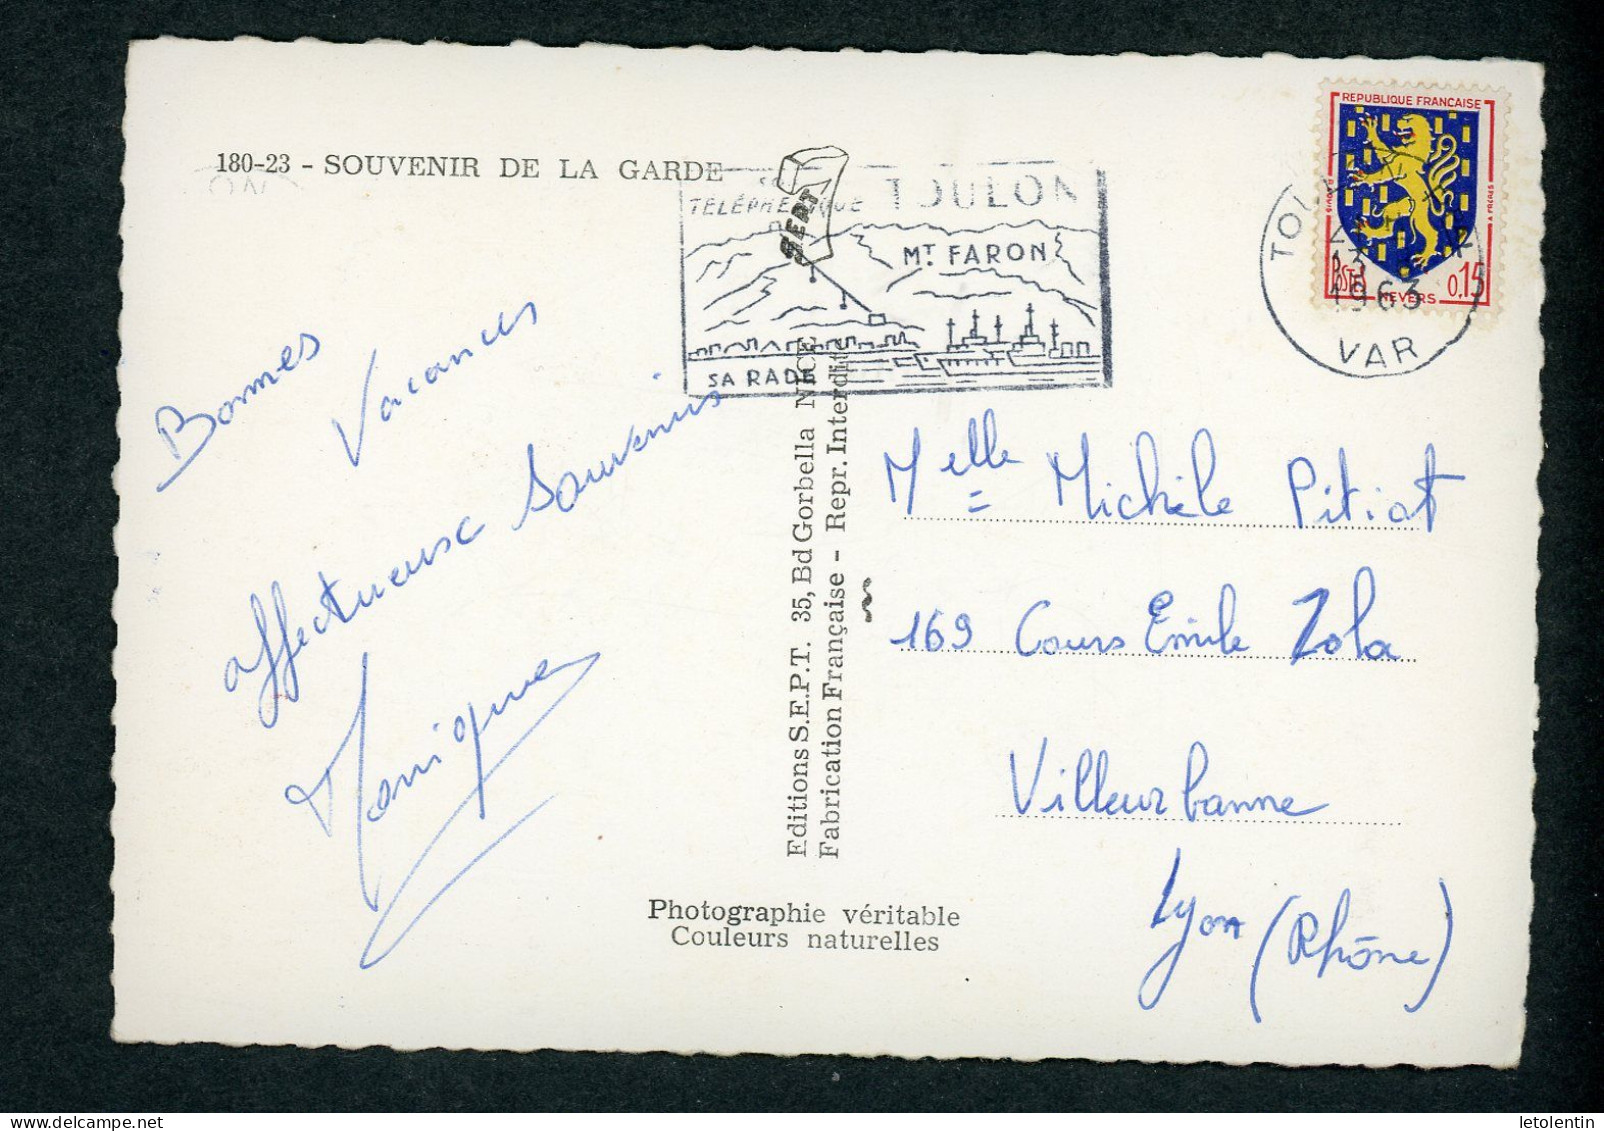 180-23 - SOUVENIR DE LA GARDE
TÉLÉPHÉRIQUE
TOULON
MT. FARON
SA RADE
SEPT
REPUBLIQUE FRANCAISE
POSTES
NEVERS
0,15
TOULON
13
1963
VAR
Bonnes
Vacances
affectueuse souvenirs
Monique
Editions S.E.P.T. 35, Bd Gorbella NICE
Fabrication Française - Repr. Interdite
Melle Michèle Pitiot
169 Cours Emile Zola
Villeurbanne
Lyon (Rhône)
Photographie véritable
Couleurs naturelles
letolentin